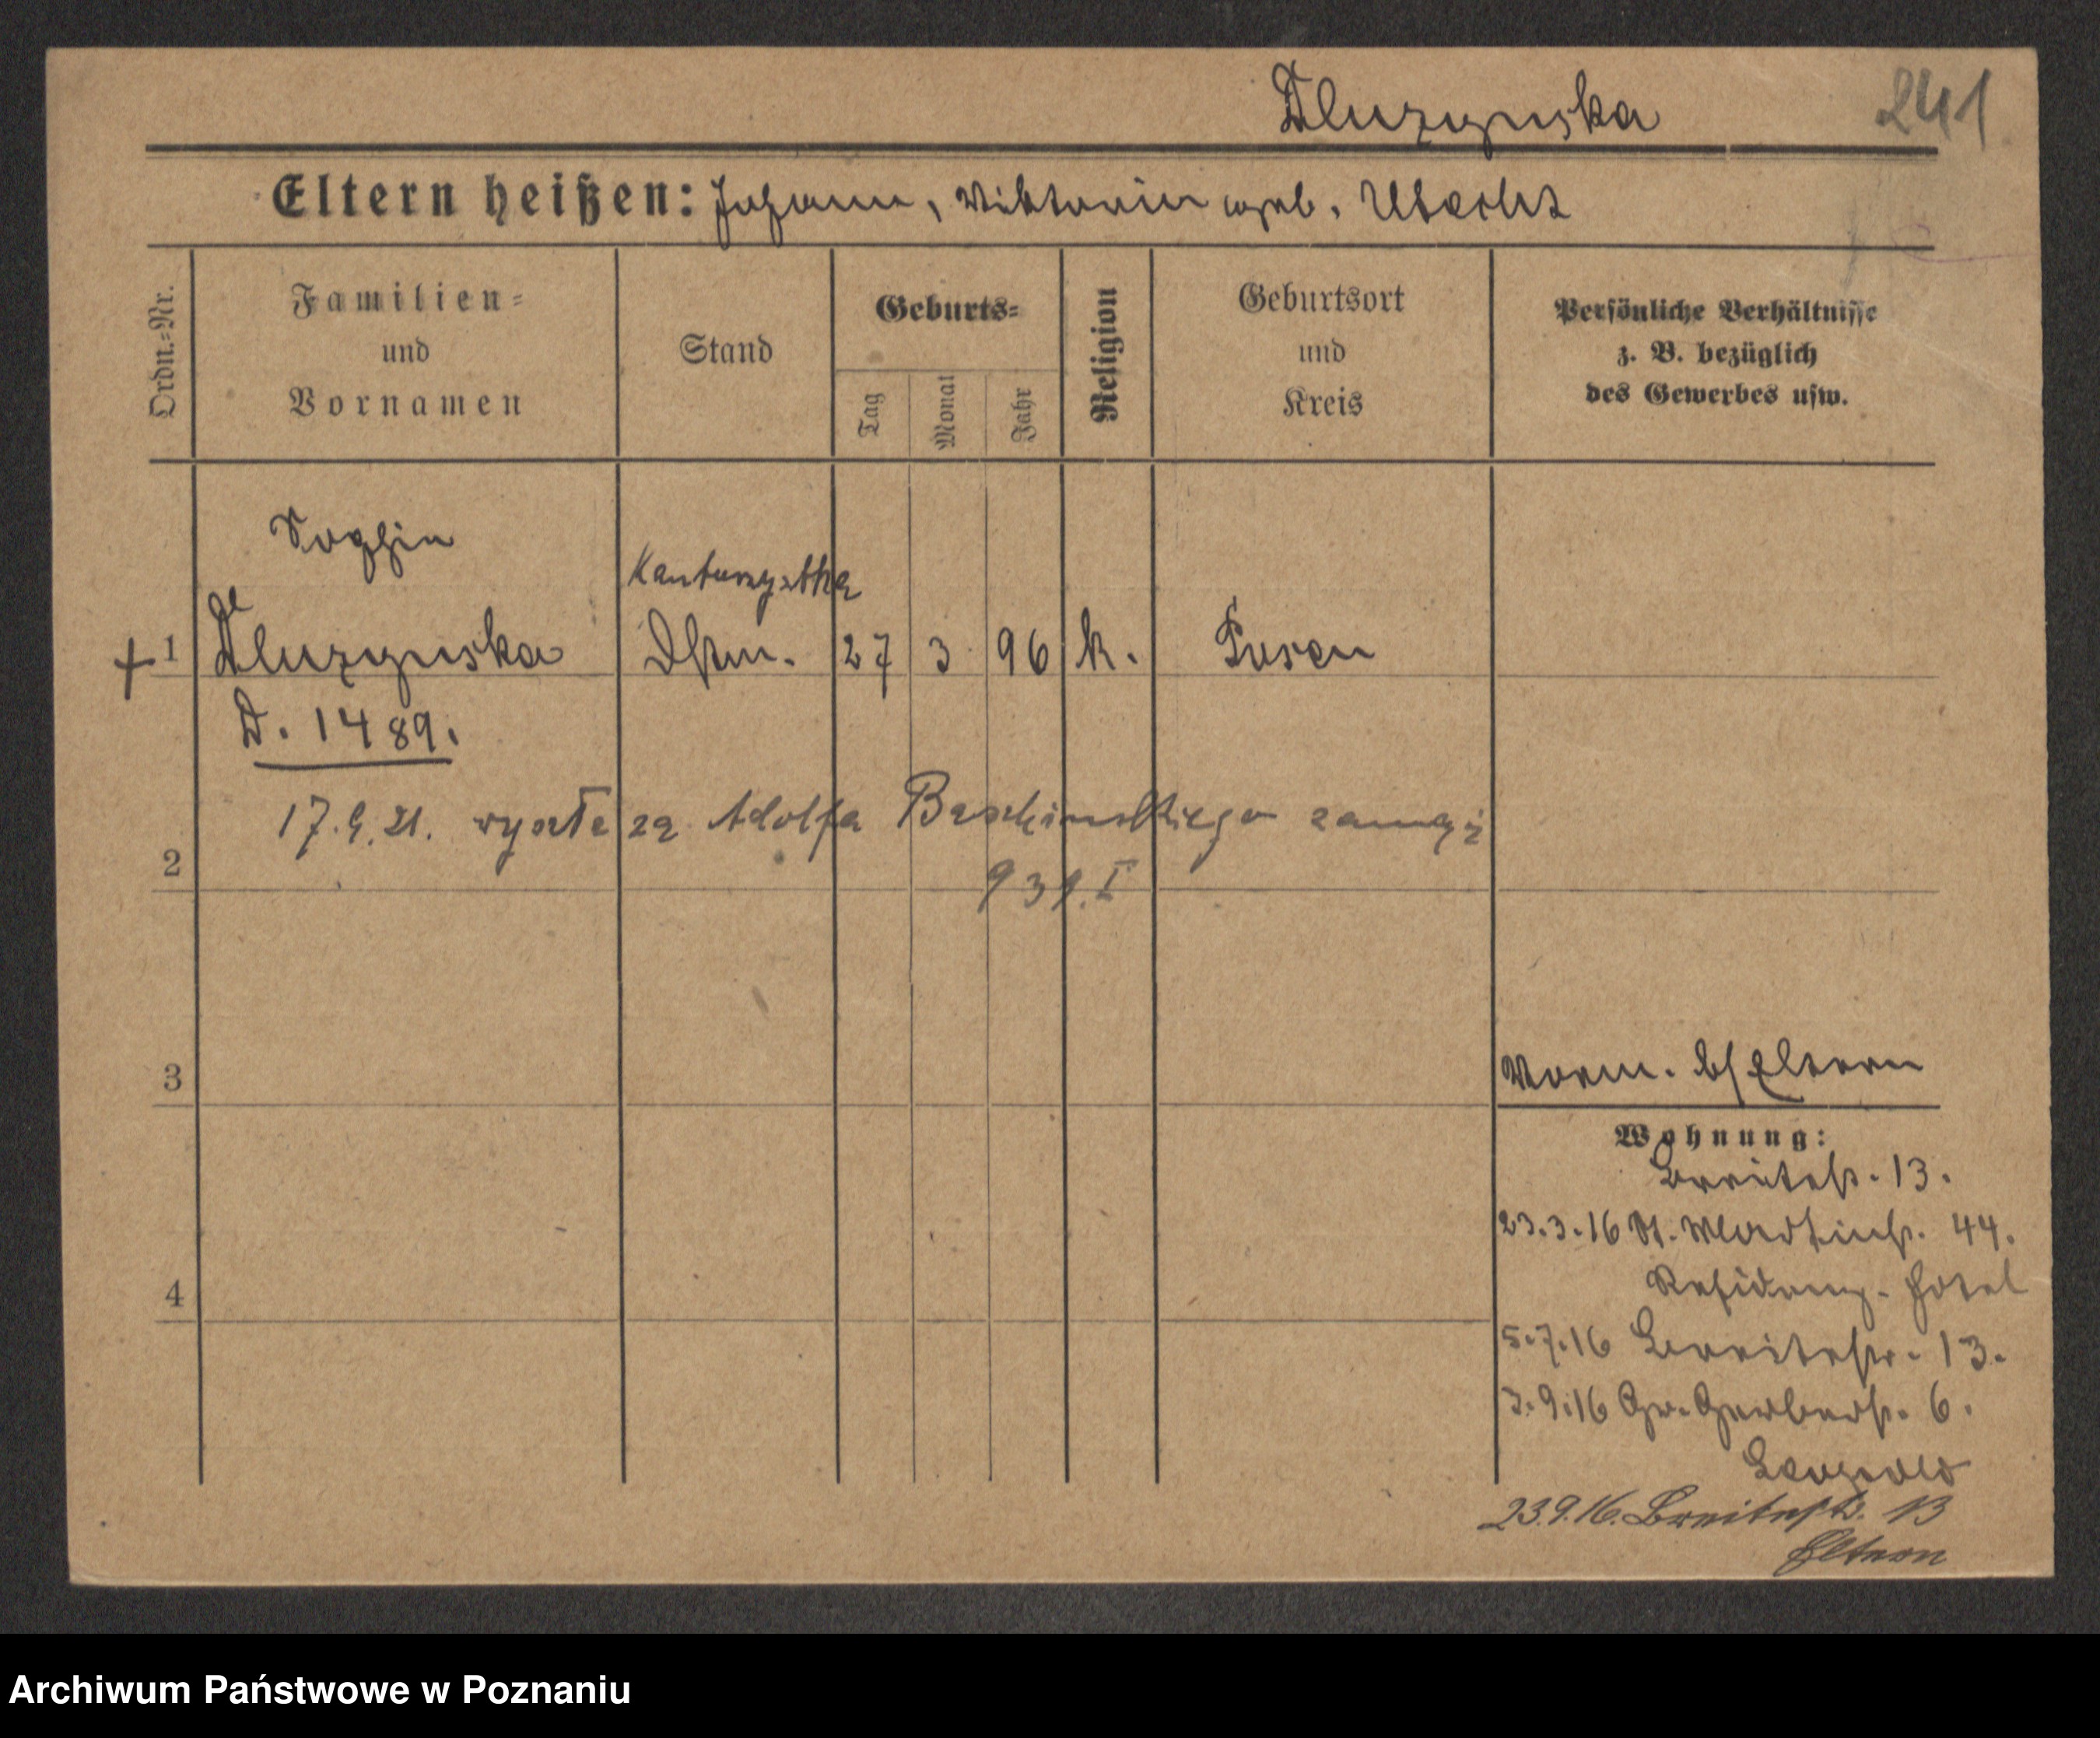 Dluzynska 241
Eltern heißen: Johann, Viktoria geb. Ubecht
Ordn.-Nr.
Familien-
und
Vornamen
Stand
Geburts-
Tag
Monat
Jahr
Religion
Geburtsort
und
Kreis
Persönliche Verhältnisse
z. B. bezüglich
des Gewerbes usw.
Sophie
Kantorzystka
1 Dluzynska 27 3 96 k. Posen
D. 1489.
17.9.21. wyszła za Adolfa zamąż
2
939.I
3
Vorm. b/ Eltern
Wohnung:
Breitestr. 13.
23.3.16 St. Martinstr. 44.
Residenz-Hotel
4
5.7.16 Breitestr. 13.
3.9.16 Gr. Gerberstr. 6.
23.9.16. Breitestr. 13
Eltern
Archiwum Państwowe w Poznaniu